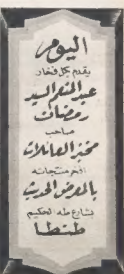 اليوم
يقدم بكل فخار
عبد المنعم السيد
رمضان
صاحب
مخبز العائلات
أفخر منتجاته
بالمعرض الحديث
بشارع طه الحكيم
طنطا